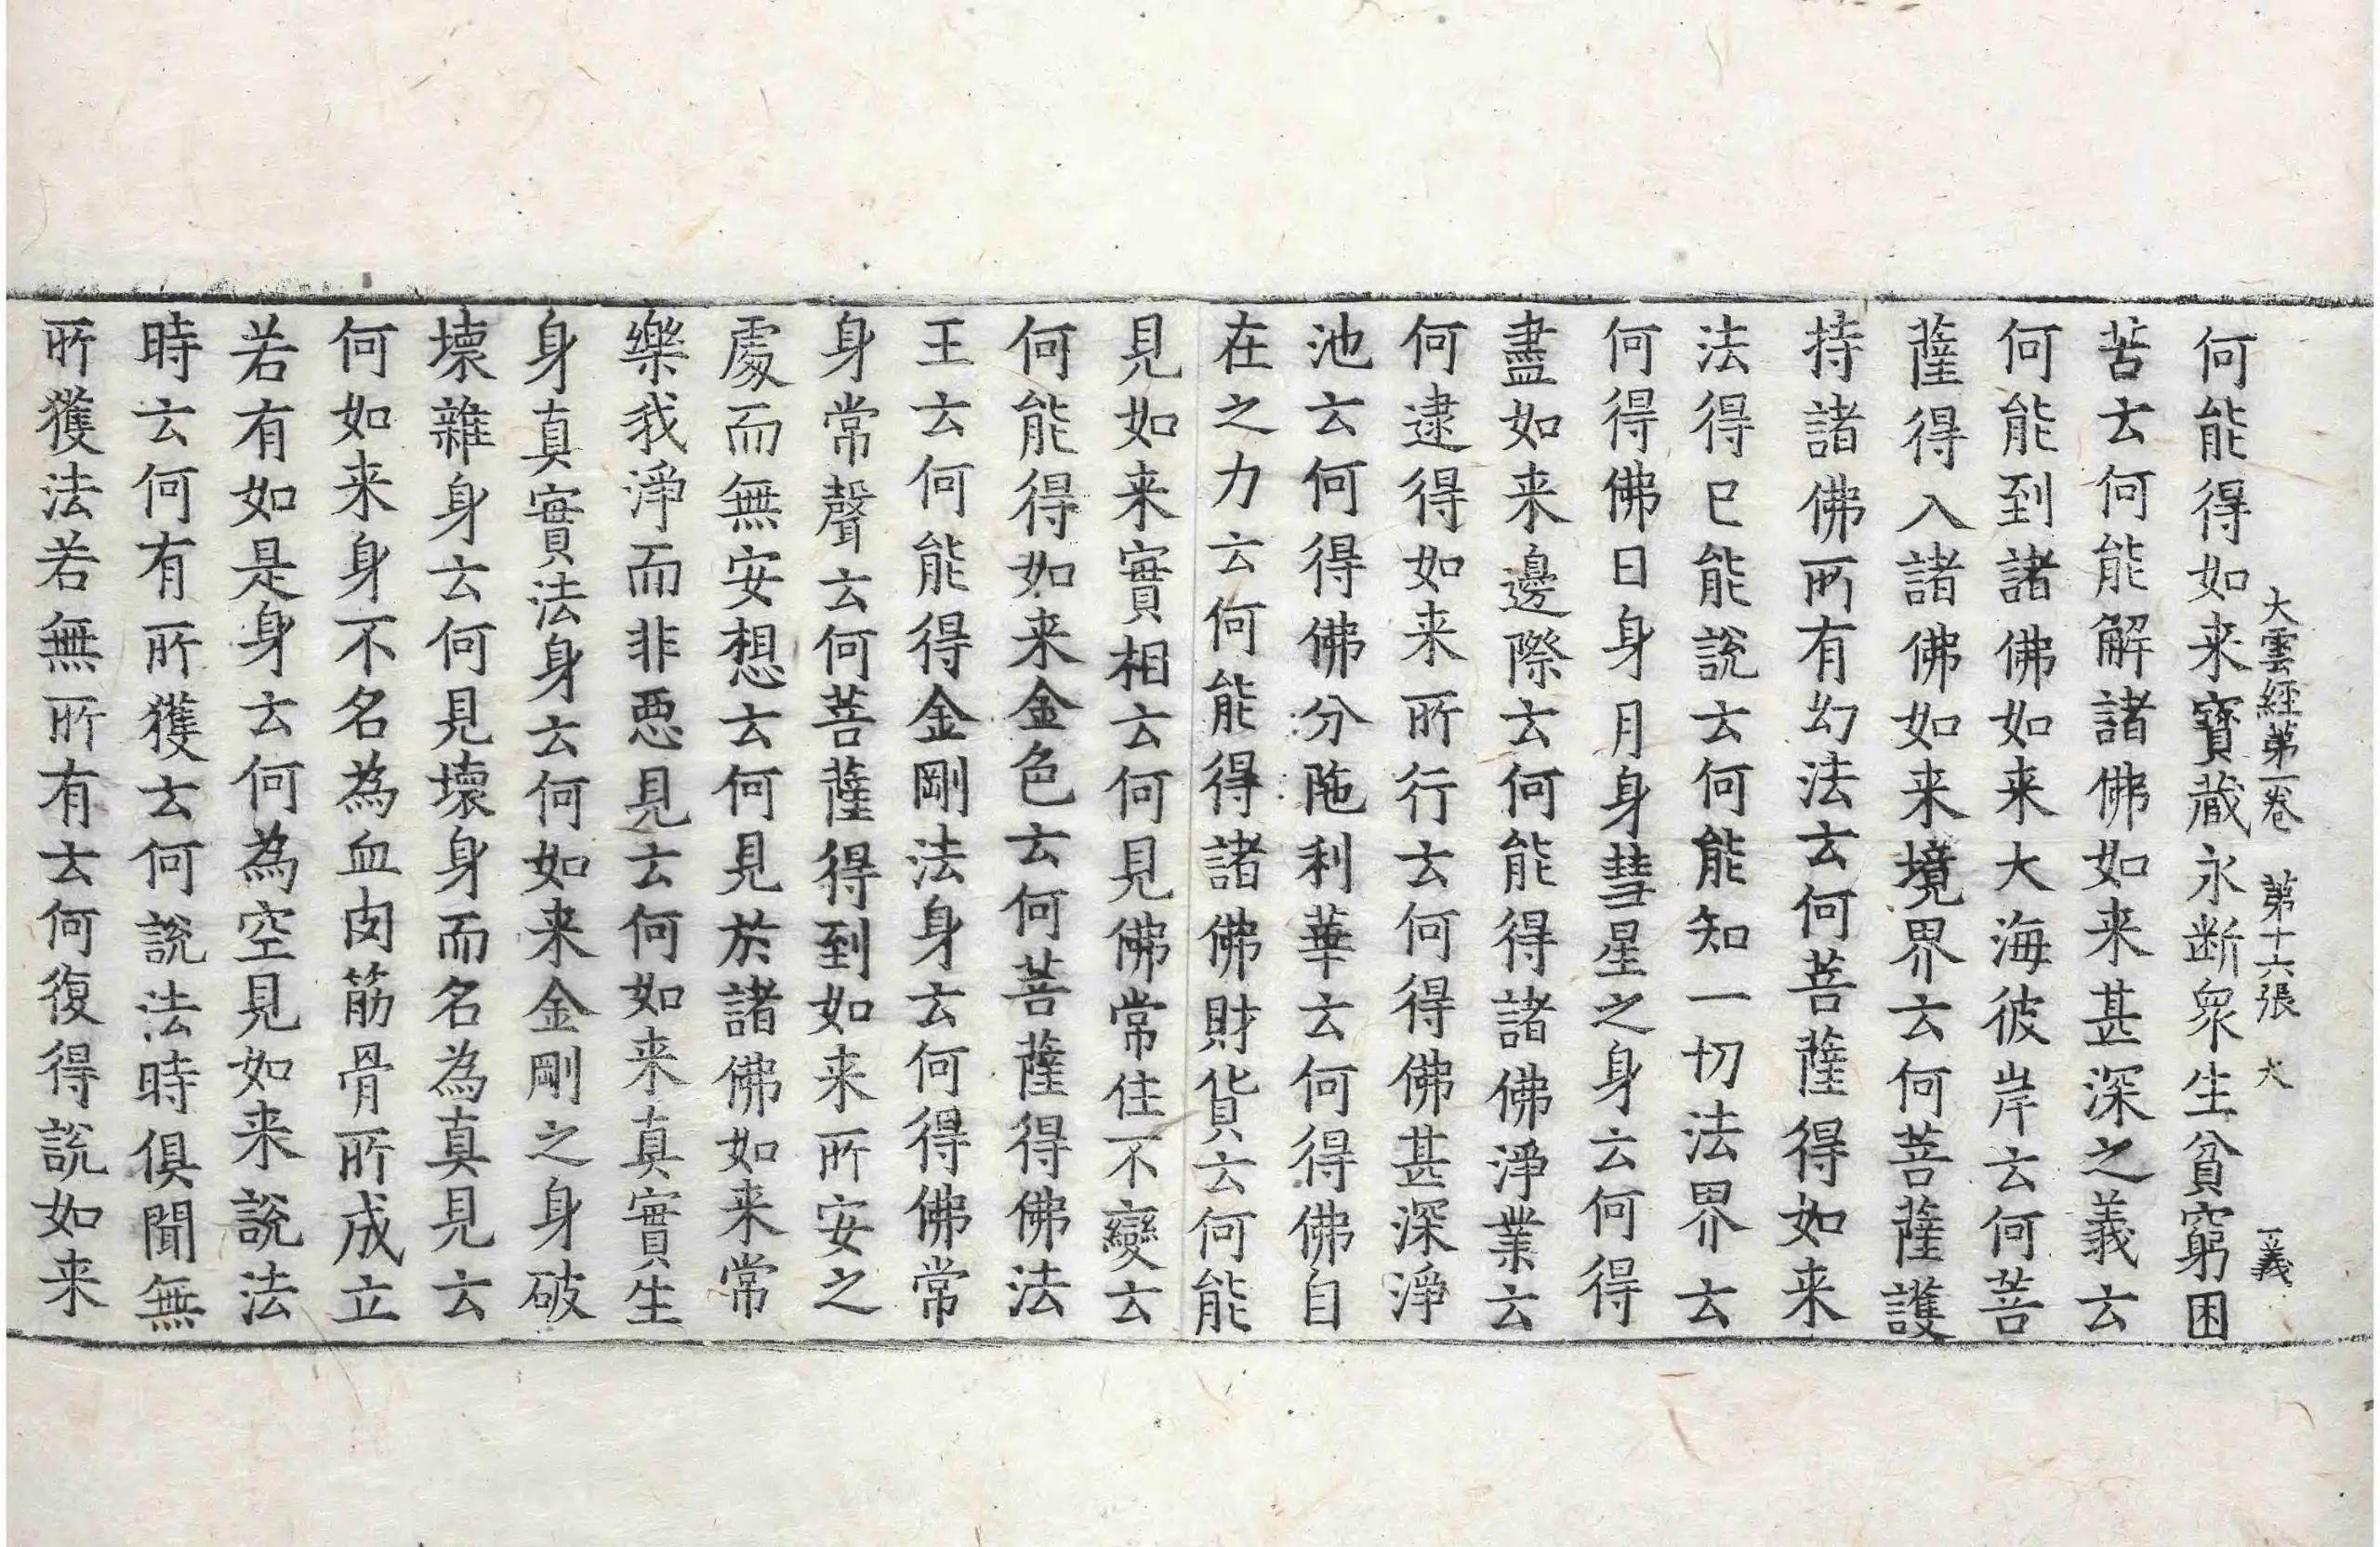 大雲經第一卷 第十六張 大 一義
何能得如来寳蔵永断衆生貧窮困
苦去何能解諸佛如来甚深之義云
何能到諸佛如来大海彼岸云何菩
薩得入諸佛如来境界云何菩薩護
持諸佛所有幻法去何菩薩得如来
法得巳能說去何能知一切法界去
何得佛日身月身彗星之身云何得
盡如来邊際去何能得諸佛淨業云
何逮得如来所行去何得佛甚深淨
池云何得佛分陁利華云何得佛自
在之力云何能得諸佛財貨云何能
見如来實相去何見佛常住不變去
何能得如来金色去何菩薩得佛法
王云何能得金剛法身去何得佛常
身常聲云何菩薩得到如来所安之
處而無安想去何見於諸佛如来常
樂我淨而非惡見去何如来真實生
身真實法身去何如来金剛之身破
壊雜身云何見壊身而名為真見云
何如来身不名為血肉筋骨所成立
若有如是身去何為空見如来說法
時云何有所獲去何說法時俱聞無
所獲法若無所有去何復得說如来